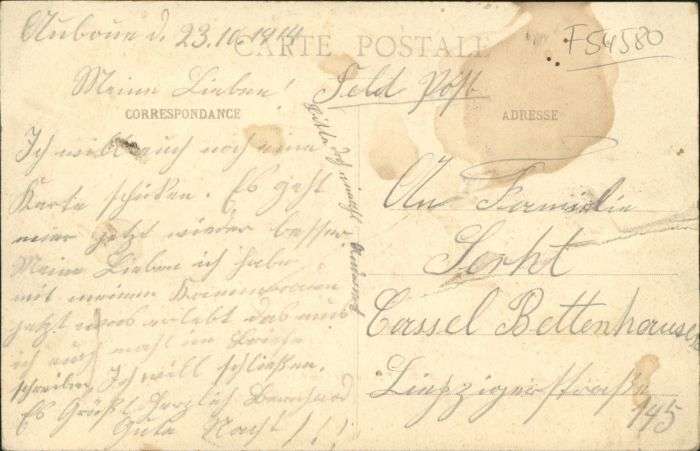 Auboué d. 23.10.1914
CARTE POSTALE
F54580
Meine Lieben!
Feld Post
CORRESPONDANCE
ADRESSE
Ich will euch noch eine
Karte schicken. Es geht
mier jetzt wieder besser.
Meine Lieben ich habe
mit meinen Kammeraden
jetzt was erlebt das mus
ich euch mahl im Briefe
schreiben Ich will schließen.
Es Grüßt Herzlich Bernhard
Gute Nacht!!!
Bitte
An Familie
Cassel Bettenhausen
Liepzigerstraße
145